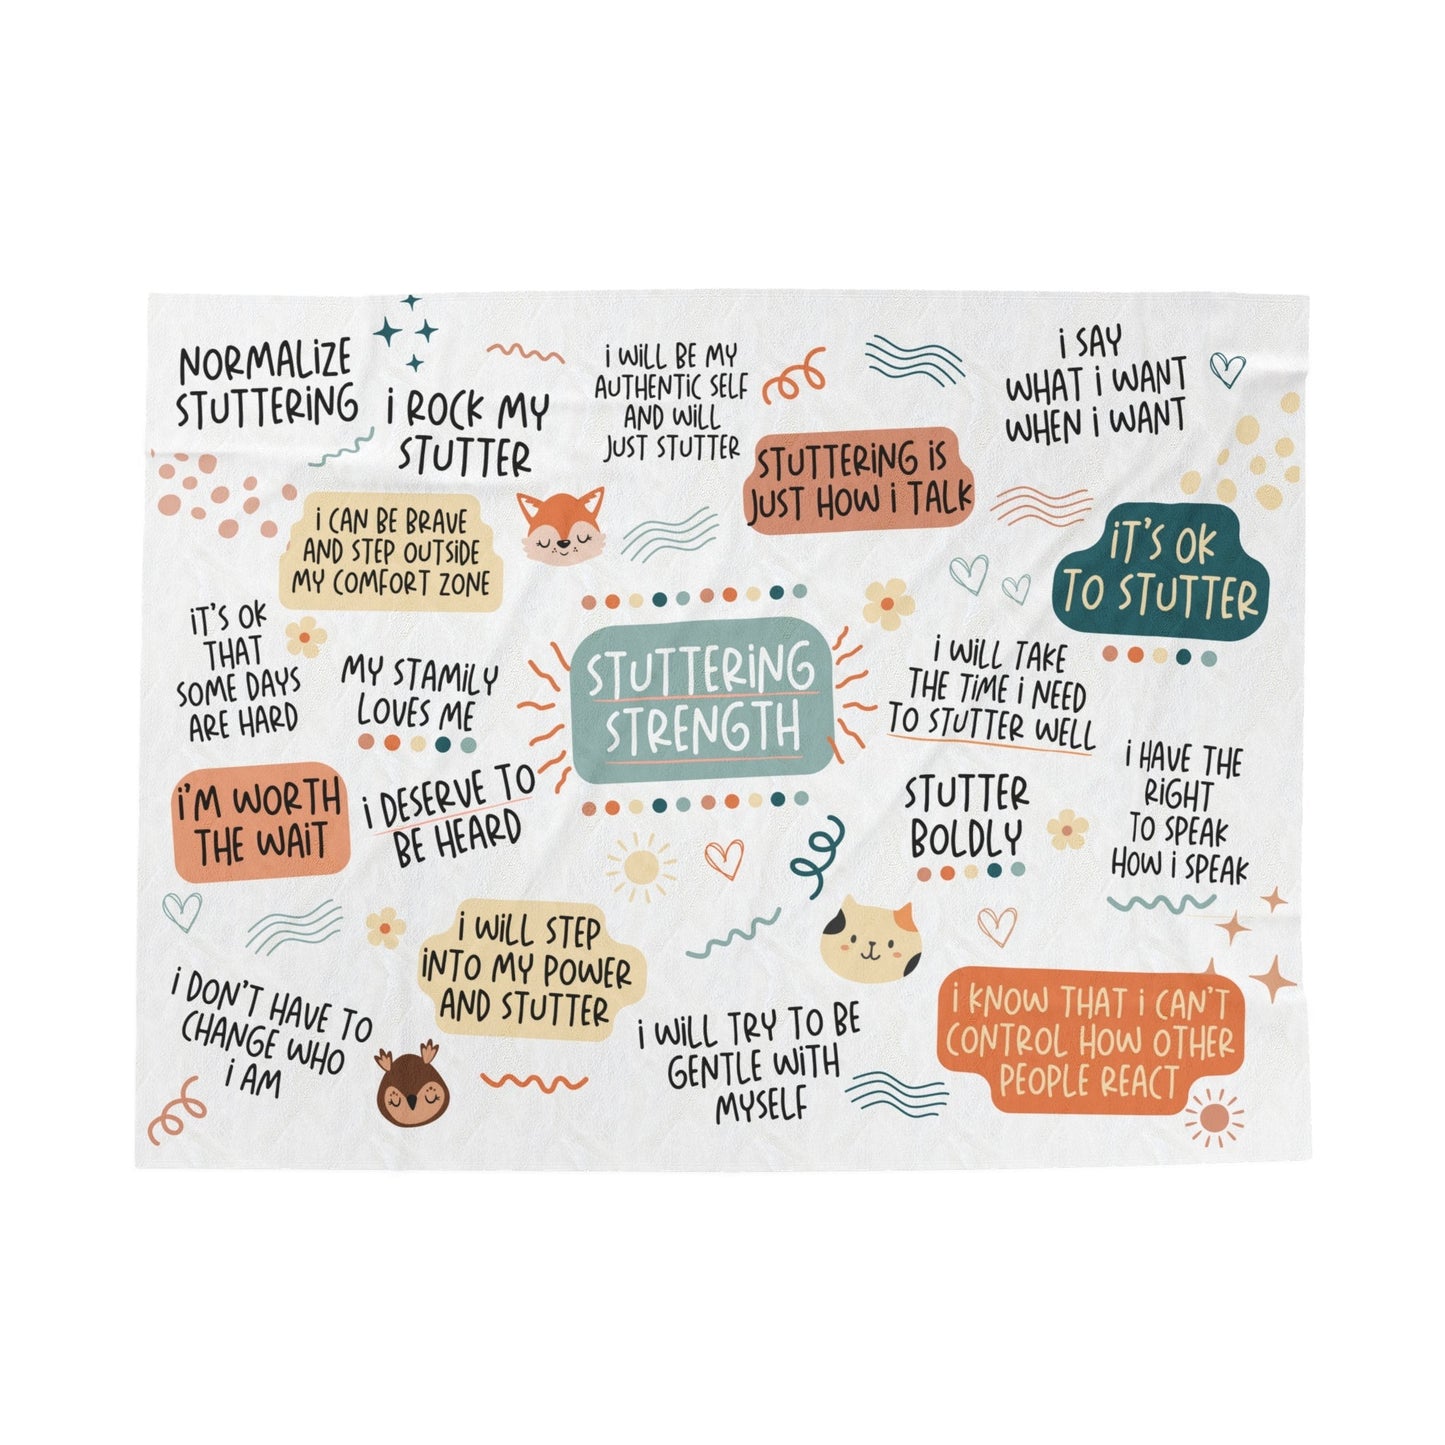 NORMALiZE
STUTTERiNG
i ROCK MY
STUTTER
i WiLL BE MY
AUTHENTiC SELF
AND WiLL
JUST STUTTER
STUTTERiNG iS
JUST HOW i TALK
i SAY
WHAT i WANT
WHEN i WANT
i CAN BE BRAVE
AND STEP OUTSiDE
MY COMFORT ZONE
iT'S OK
TO STUTTER
iT'S OK
THAT
SOME DAYS
ARE HARD
MY STAMiLY
LOVES ME
STUTTERiNG
STRENGTH
i WiLL TAKE
THE TiME i NEED
TO STUTTER WELL
i'M WORTH
THE WAiT
i DESERVE TO
BE HEARD
STUTTER
BOLDLY
i HAVE THE
RiGHT
TO SPEAK
HOW i SPEAK
i DON'T HAVE TO
CHANGE WHO
i AM
i WiLL STEP
iNTO MY POWER
AND STUTTER
i WiLL TRY TO BE
GENTLE WiTH
MYSELF
i KNOW THAT i CAN'T
CONTROL HOW OTHER
PEOPLE REACT